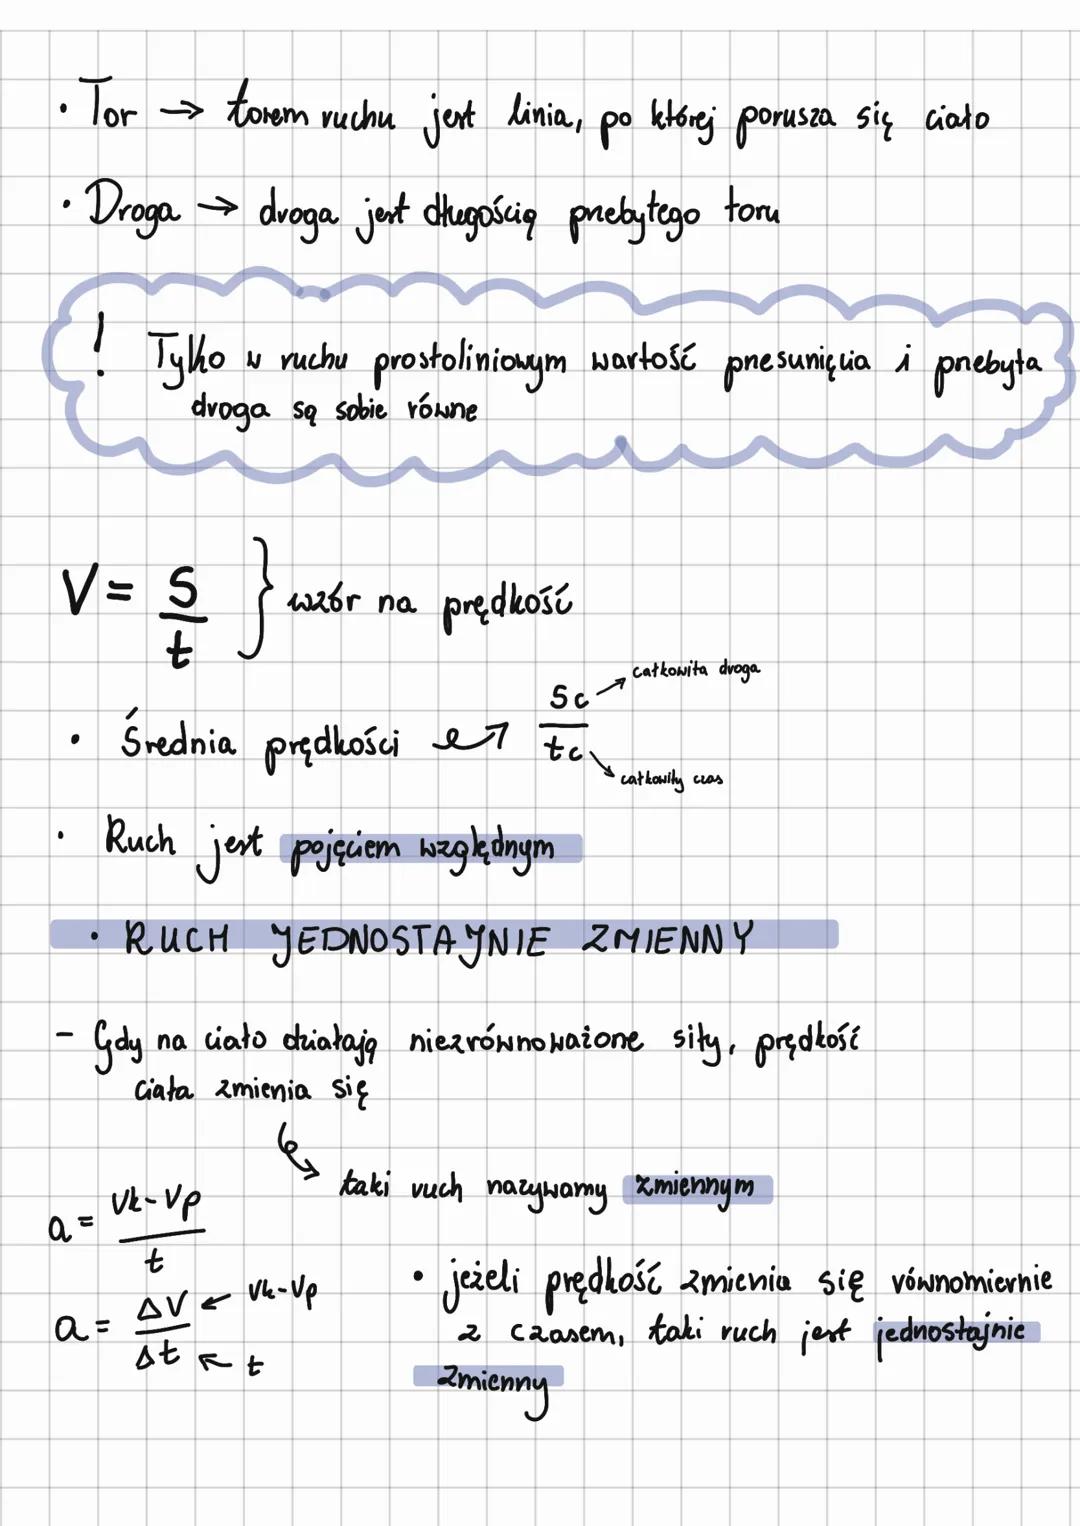 • Tor → torem ruchu jest linia, po której porusza się ciało
• Droga → droga jest długością przebytego toru
! Tylko w ruchu prostoliniowym wartość przesunięcia i przebyta
droga są sobie równe
V = s/t } wzór na prędkość
• Średnia prędkości → Sc/tc
całkowita droga
całkowity czas
• Ruch jest pojęciem względnym
• RUCH JEDNOSTAJNIE ZMIENNY
- Gdy na ciało działają niezrównoważone siły, prędkość
ciała zmienia się
→ taki ruch nazywamy zmiennym
a = Vk-Vp/t
a = ΔV/Δt ← Vk-Vp
← t
• jeżeli prędkość zmienia się równomiernie
z czasem, taki ruch jest jednostajnie
zmienny